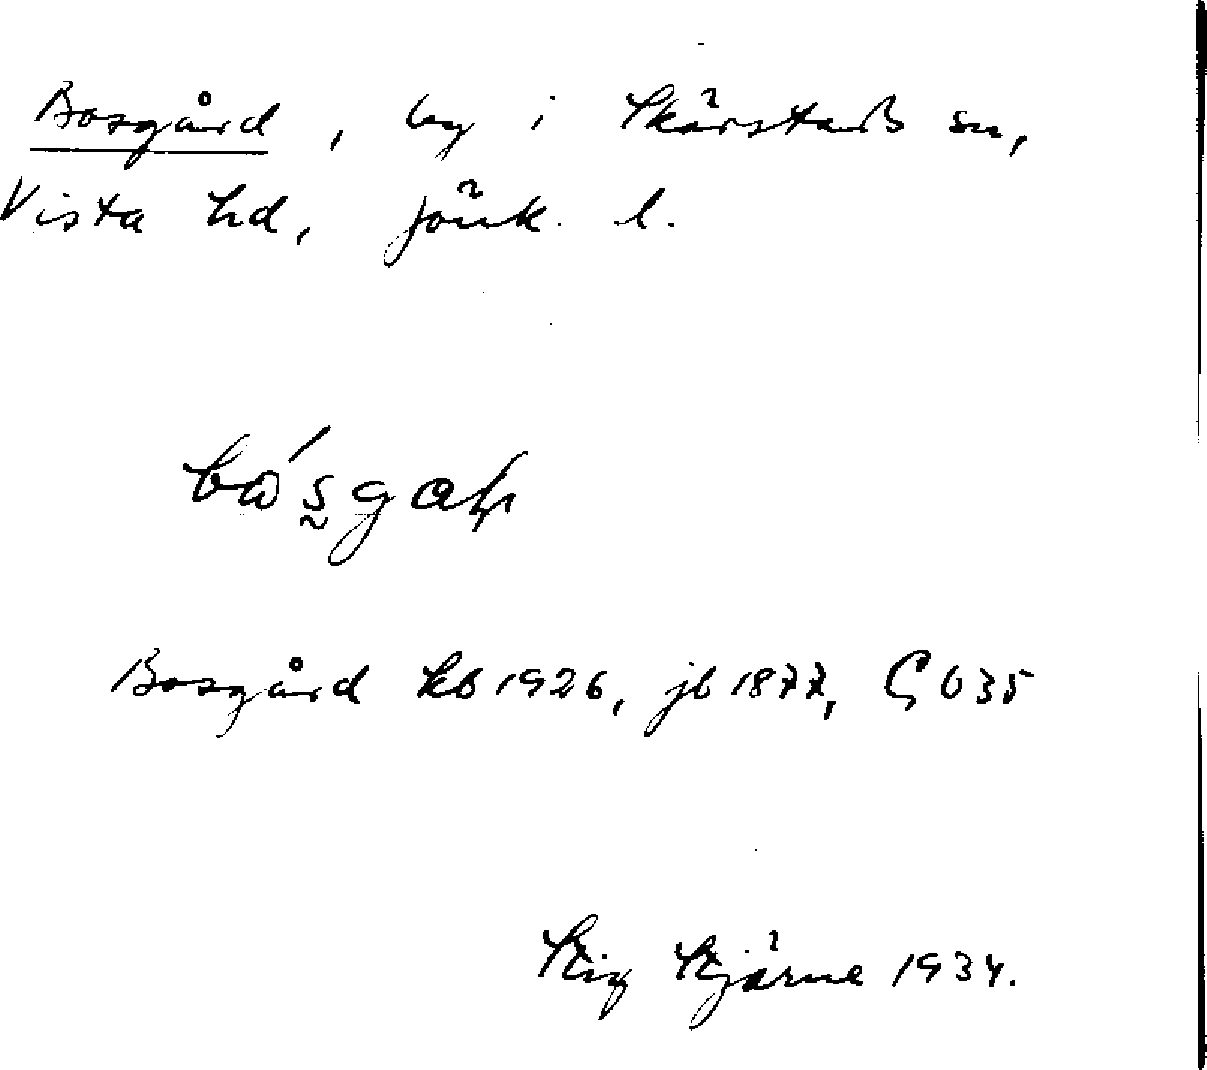 Bosgård, by i Skärstads sn,
Vista hd, Jönk. l.
Bosgård kb 1926, jb 1877, G 035
Stig Stjärne 1934.